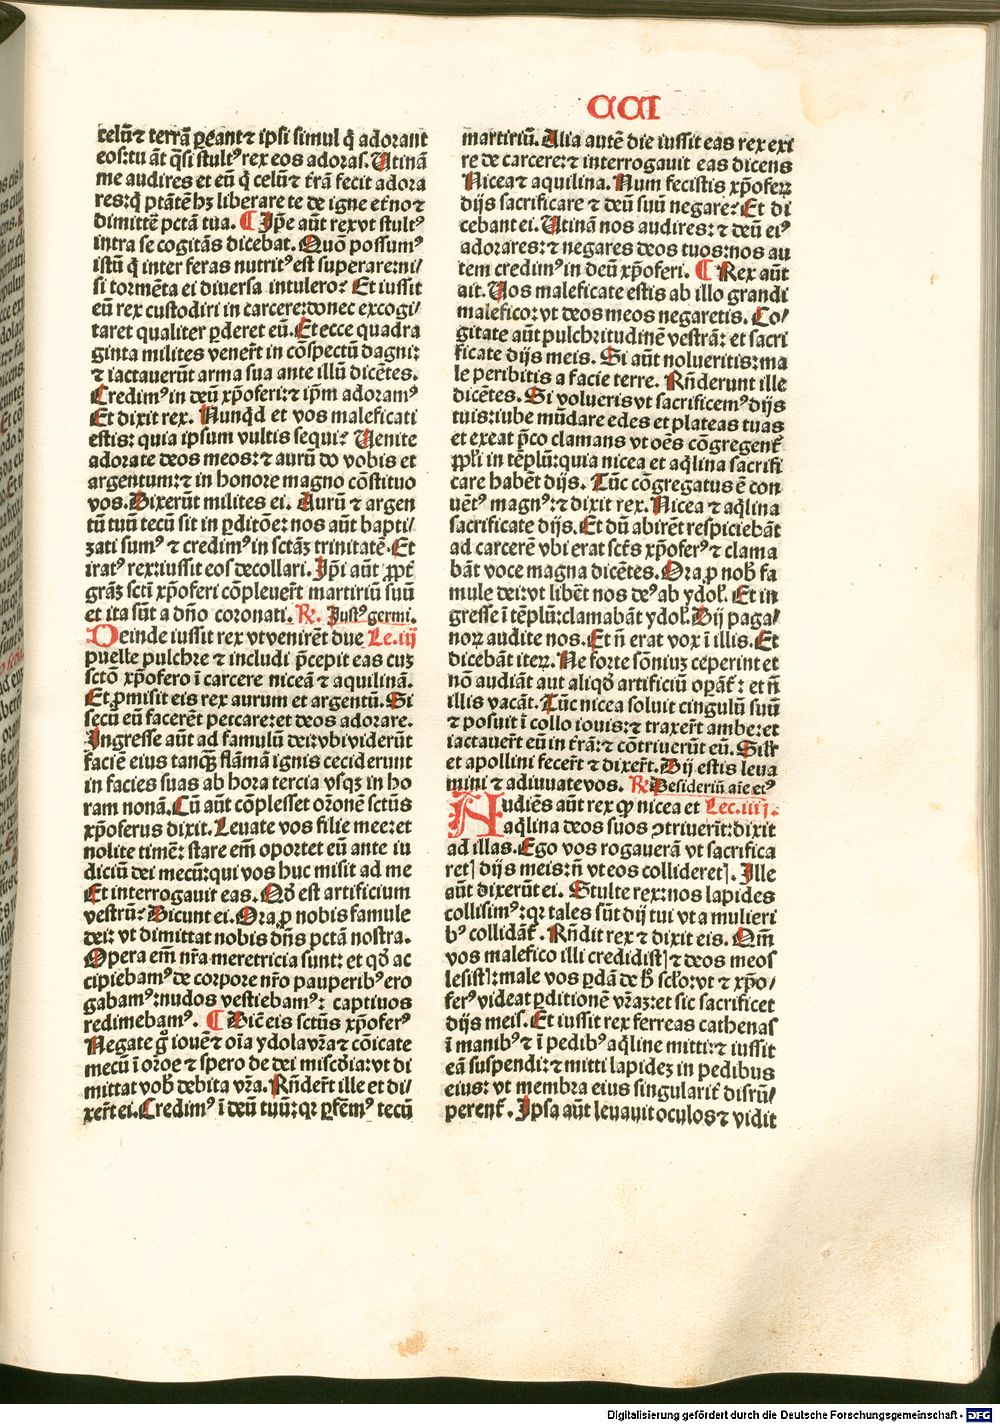 CCI
celū⁊ terrā ꝑeant⁊ ipsi simul q̄ adorant
eos:tu āt q̄si stultꝰ rex eos adoras. Utinā
me audires et eū q̄ celū⁊ t̄rā fecit adora
res:q̄ ptātē hꝫ liberare te de igne et̄no⁊
dimittē pctā tua. ¶ Ip̄e aūt rex vt stultꝰ
intra se cogitās dicebat. Quō possumꝰ
istū q̄ inter feras nutritꝰ est superare:ni/
si tormēta ei diversa intulero? Et iussit
eū rex custodiri in carcere:donec excogi/
taret qualiter ꝑderet eū. Et ecce quadra
ginta milites venert̄ in cōspectū dagni:
⁊ iactaverūt arma sua ante illū dicētes.
Credimꝰ in deū xp̄oferi:⁊ ip̄m adoramꝰ
Et dixit rex. Nunqd̄ et vos maleficati
estis: quia ipsum vultis sequi? Venite
adorate deos meos:⁊ aurū do vobis et
argentum:⁊ in honore magno cōstituo
vos. Dixerūt milites ei. Aurū ⁊ argen
tū tuū tecū sit in ꝑditōe: nos aūt bapti/
zati sumꝰ ⁊ credimꝰ in sctāꝫ trinitatē. Et
iratꝰ rex:iussit eos decollari. Ip̄i aūt ꝓpt̄
grāꝫ scti xp̄oferi cōplevert̄ martiriū suū
et ita sūt a dn̄o coronati. ℞. Justꝰ germi.
Deinde iussit rex vt venirēt due Le.iij
puelle pulchre ⁊ includi p̄cepit eas cuꝫ
sctō xp̄ofero ī carcere niceā ⁊ aquilinā.
Et ꝓmisit eis rex aurum et argentū. Si
secū eū facerēt peccare:et deos adorare.
Ingresse aūt ad famulū dei:vbi viderūt
faciē eius tanqꝫ flāmā ignis ceciderunt
in facies suas ab hora tercia vsqꝫ in ho
ram nonā. Cū aūt cōplesset or̄onē sctus
xp̄oferus dixit. Levate vos filie mee:et
nolite timē: stare em̄ oportet eū ante iu
diciū dei mecū:qui vos huc misit ad me
Et interrogavit eas. Qd̄ est artificium
vestrū? Dicunt ei. Ora ꝓ nobis famule
dei: vt dimittat nobis dn̄s pctā nostra.
Opera em̄ nr̄a meretricia sunt: et qd̄ ac
cipiebamꝰ de corpore nr̄o pauperibꝰ ero
gabamꝰ:nudos vestiebamꝰ: captivos
redimebamꝰ. ¶ Dic̄ eis sctūs xp̄oferꝰ
Negate gͦ iovē⁊ oīa ydola vr̄a⁊ cōicate
mecū ī or̄oe ⁊ spero de dei misc̄dia:vt di
mittat vob̄ debita vr̄a. Rn̄dert̄ ille et di/
xert̄ ei. Credimꝰ ī deū tuū:qꝛ ꝑfemꝰ tecū
martiriū. Alia autē die iussit eas rex exi
re de carcere:⁊ interrogavit eas dicens
Nicea⁊ aquilina. Num fecistis xp̄oferꝫ
dijs sacrificare ⁊ deū suū negare? Et di
cebant ei. Utinā nos audires:⁊ deū eiꝰ
adorares:⁊ negares deos tuos:nos au
tem credimꝰ in deū xp̄oferi. ¶ Rex aūt
ait. Vos maleficate estis ab illo grandi
malefico:vt deos meos negaretis. Co/
gitate aūt pulchritudinē vestrā: et sacri
ficate dijs meis. Si aūt nolueritis:ma
le peribitis a facie terre. Rn̄derunt ille
dicētes. Si volueris vt sacrificemꝰ dijs
tuis:iube mūdare edes et plateas tuas
et exeat p̄co clamans vt oēs cōgregent̄
ppl̄i in tēplū:quia nicea et aq̄lina sacrifi
care habēt dijs. Tūc cōgregatus ē con
vētꝰ magnꝰ:⁊ dixit rex. Nicea ⁊ aq̄lina
sacrificate dijs. Et dū abirēt respiciebāt
ad carcerē vbi erat sct̄s xp̄oferꝰ⁊ clama
bāt voce magna dicētes. Ora ꝓ nob̄ fa
mule dei:vt libēt nos deꝰ ab ydol̄. Et in
gresse ī tēplū:clamabāt ydol̄. Dij paga/
noꝝ audite nos. Et n̄ erat vox ī illis. Et
dicebāt iteꝝ. Ne forte sōniuꝫ ceperint et
nō audiāt aut aliqd̄ artificiū opāt̄: et n̄
illis vacāt. Tūc nicea soluit cingulū suū
⁊ posuit ī collo iouis:⁊ traxert̄ ambe:et
iactavert̄ eū in t̄rā:⁊ cōtriverūt eū. Silr̄
et apollini fecert̄ ⁊ dixert̄. Dij estis leva
mini ⁊ adiuvate vos. ℞. Desideriū aīe eiꝰ
Audiēs aūt rex ꝙ nicea et Lec.iiij.
aq̄lina deos suos ꝯtriverūt:dixit
ad illas. Ego vos rogaverā vt sacrifica
retꝭ dijs meis:n̄ vt eos collideretꝭ. Ille
aūt dixerūt ei. Stulte rex:nos lapides
collisimꝰ:qꝛ tales sūt dij tui vt a mulieri
bꝰ collidāt̄. Rn̄dit rex ⁊ dixit eis. Qm̄
vos malefico illi credidistꝭ⁊ deos meos
lesistꝭ:male vos ꝑdā de hͦ sclo:vt ⁊ xp̄o/
ferꝰ videat ꝑditionē vr̄aꝫ:et sic sacrificet
dijs meis. Et iussit rex ferreas cathenas
ī manibꝰ⁊ ī pedibꝰ aq̄line mitti:⁊ iussit
eā suspendi:⁊ mitti lapideꝫ in pedibus
eius: vt membra eius singularit̄ disrū/
perent̄. Ipsa aūt levavit oculos⁊ vidit
Digitalisierung gefördert durch die Deutsche Forschungsgemeinschaft - DFG